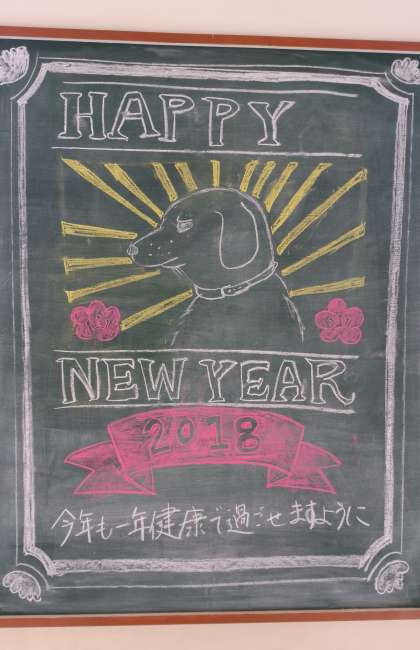 HAPPY
NEW YEAR
2018
今年も一年健康で過ごせますように